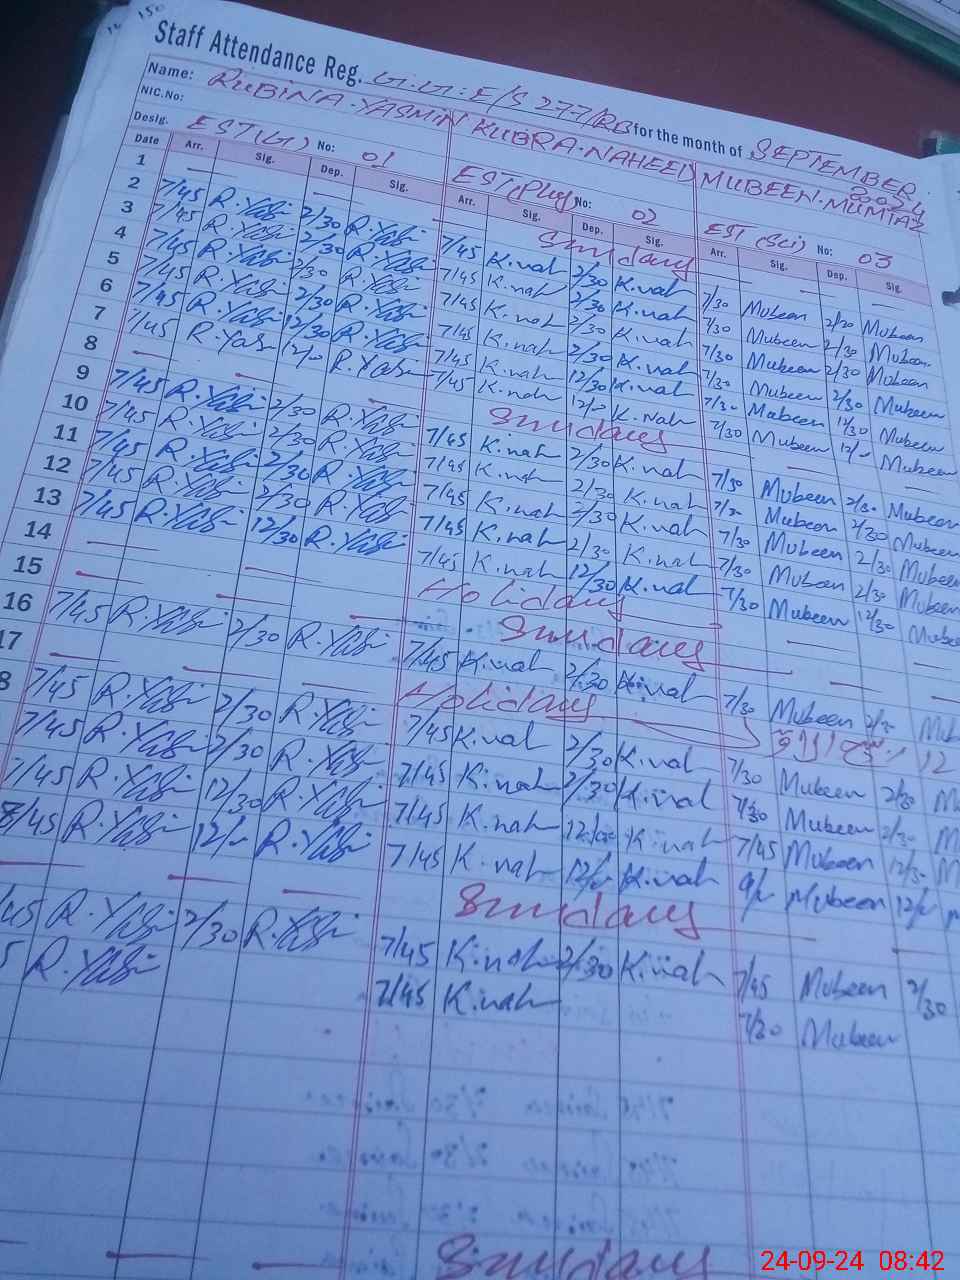 Staff Attendance Reg. G.G.E/S 277/RB for the month of SEPTEMBER 2024
Name: RUBINA.YASMIN KUBRA.NAHEED MUBEEN.MUMTAZ
NIC.No:
Desig. EST(G) No: 01 EST(Phy) No: 02 EST (Sci) No: 03
Date Arr. Sig. Dep. Sig. Arr. Sig. Dep. Sig. Arr. Sig. Dep. Sig.
1 Sunday
2 7/45 R.Yasi 2/30 R.Yasi 7/45 K.nah 2/30 K.nah 7/30 Mubeen 2/30 Mubeen
3 7/45 R.Yasi 2/30 R.Yasi 7/45 K.nah 2/30 K.nah 7/30 Mubeen 2/30 Mubeen
4 7/45 R.Yasi 2/30 R.Yasi 7/45 K.nah 2/30 K.nah 7/30 Mubeen 2/30 Mubeen
5 7/45 R.Yasi 2/30 R.Yasi 7/45 K.nah 2/30 K.nah 7/30 Mubeen 2/30 Mubeen
6 7/45 R.Yasi 12/30 R.Yasi 7/45 K.nah 12/30 K.nah 7/30 Mubeen 12/30 Mubeen
7 7/45 R.Yasi R.Yasi 7/45 K.nah K.nah 7/30 Mubeen Mubeen
8 Sunday
9 7/45 R.Yasi 2/30 R.Yasi 7/45 K.nah 2/30 K.nah 7/30 Mubeen 2/30 Mubeen
10 7/45 R.Yasi 2/30 R.Yasi 7/45 K.nah 2/30 K.nah Mubeen 2/30 Mubeen
11 7/45 R.Yasi 2/30 R.Yasi 7/45 K.nah 2/30 K.nah 7/30 Mubeen 2/30 Mubeen
12 7/45 R.Yasi 2/30 R.Yasi 7/45 K.nah 2/30 K.nah 7/30 Mubeen 2/30 Mubeen
13 7/45 R.Yasi 12/30 R.Yasi 7/45 K.nah 12/30 K.nah 7/30 Mubeen 12/30 Mubee
14 Holiday
15 Sunday
16 7/45 R.Yasi 2/30 R.Yasi 7/45 K.nah 2/30 K.nah 7/30 Mubeen Mub
17 Holiday 12
8 7/45 R.Yasi 2/30 R.Yasi 7/45 K.nah 2/30 K.nah 7/30 Mubeen 2/30 M
7/45 R.Yasi 2/30 R.Yasi 7/45 K.nah 2/30 K.nah 7/30 Mubeen 2/30 M
7/45 R.Yasi 12/30 R.Yasi 7/45 K.nah K.nah 7/45 Mubeen 12/30 M
8/45 R.Yasi R.Yasi 7/45 K.nah K.nah Mubeen
Sunday
/45 R.Yasi 2/30 R.Yasi 7/45 K.nah 2/30 K.nah 7/45 Mubeen 2/30
5 R.Yasi 7/45 K.nah 7/30 Mubeen
Sunday
24-09-24 08:42